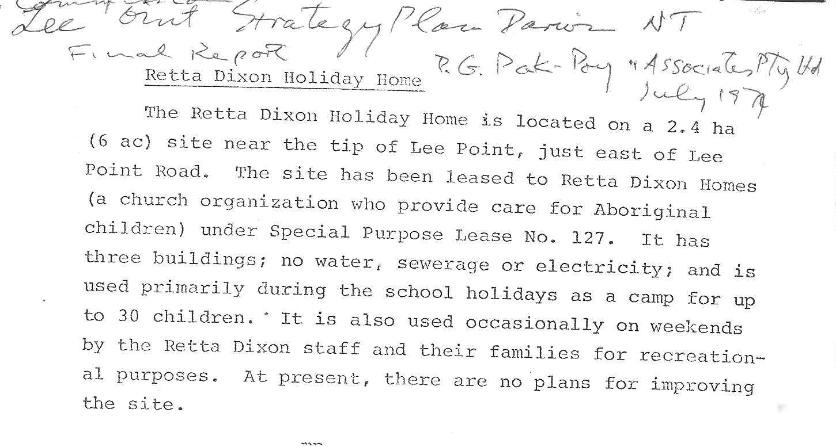 Lee Point Strategy Plan Darwin NT
Final Report
P.G. Pak-Poy & Associates Pty Ltd
July 1974
Retta Dixon Holiday Home
The Retta Dixon Holiday Home is located on a 2.4 ha
(6 ac) site near the tip of Lee Point, just east of Lee
Point Road. The site has been leased to Retta Dixon Homes
(a church organization who provide care for Aboriginal
children) under Special Purpose Lease No. 127. It has
three buildings; no water, sewerage or electricity; and is
used primarily during the school holidays as a camp for up
to 30 children. It is also used occasionally on weekends
by the Retta Dixon staff and their families for recreation-
al purposes. At present, there are no plans for improving
the site.